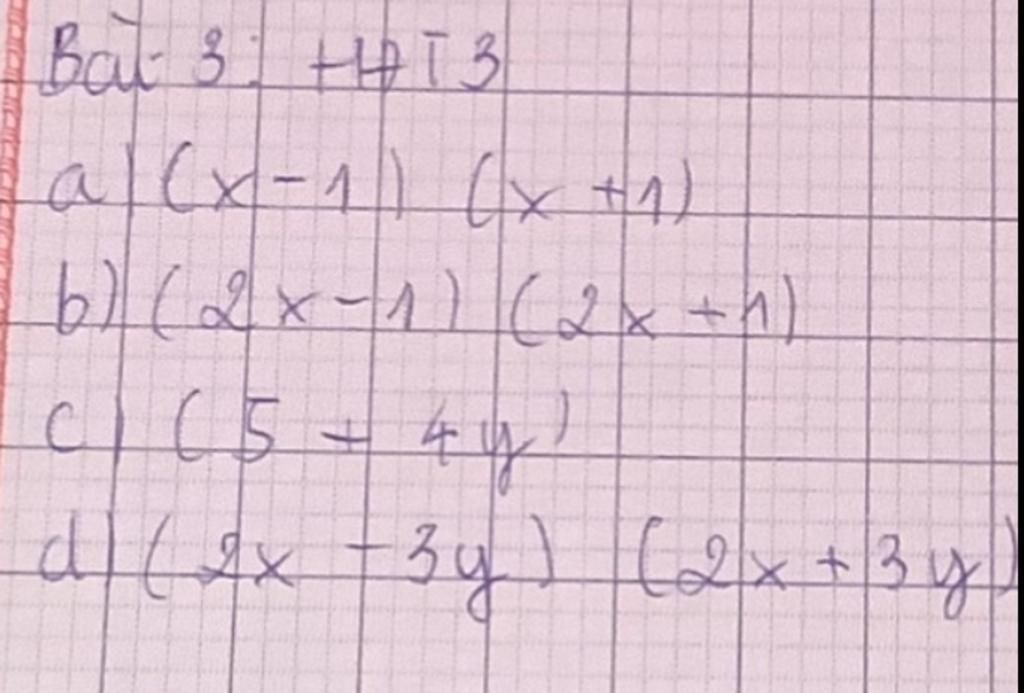 Bài 3: HĐT 3
a) (x - 1) (x + 1)
b) (2x - 1) (2x + 1)
c) (5 + 4y)
d) (2x - 3y) (2x + 3y)